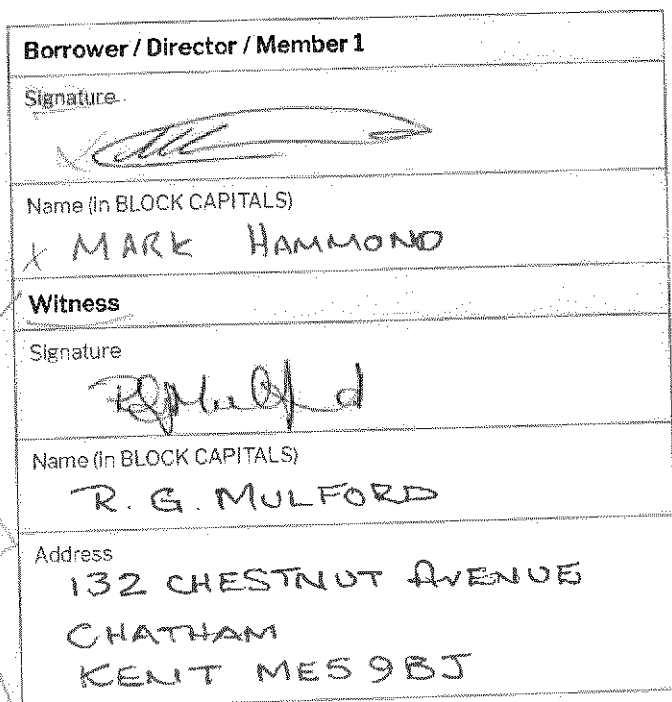 Borrower / Director / Member 1
Signature
Name (in BLOCK CAPITALS)
X MARK HAMMOND
Witness
Signature
Name (in BLOCK CAPITALS)
R. G. MULFORD
Address
132 CHESTNUT AVENUE
CHATHAM
KENT ME5 9BJ